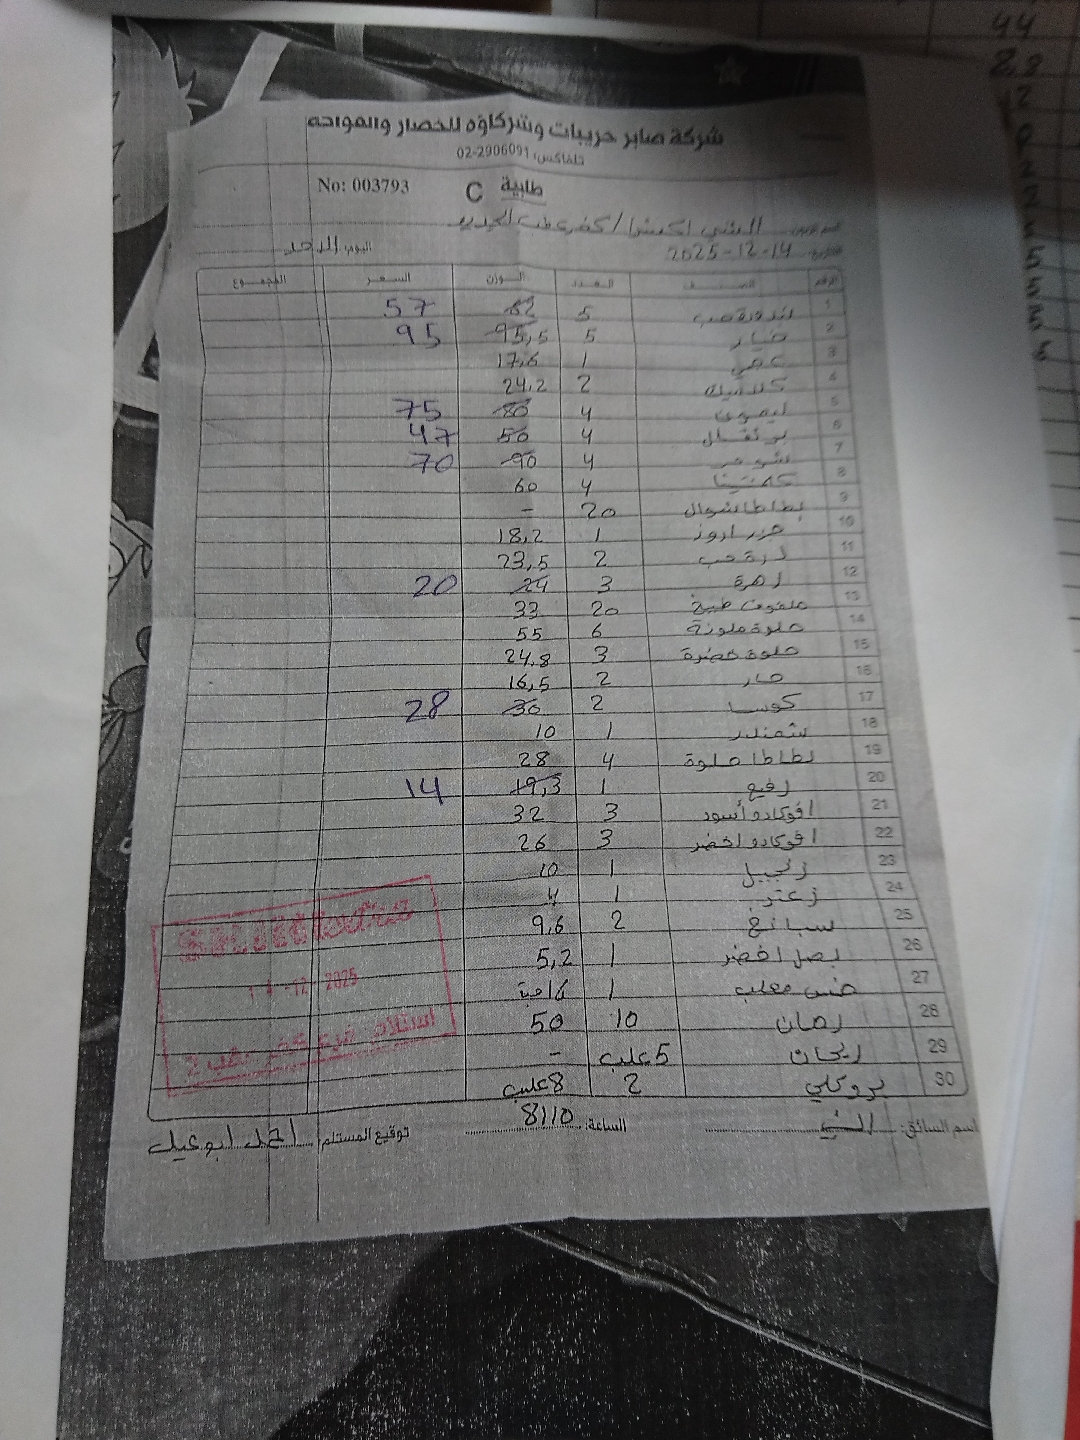 شركة صابر حريبات وشركاؤه للخضار والفواكه
تلفاكس: 02-2906091
No: 003793 C طلبية
الشني اكسترا / كفر عقب الجديد
التاريخ: 2025-12-14 اليوم: الاحد
الرقم الصنف العدد الوزن السعر المجموع
1 بندورة حب 5 62 57
2 خيار 5 95,5 95
3 1 17,6
4 2 24,2
5 ليمون 4 80 75
6 برتقال 4 50 47
7 شومر 4 90 70
8 كلمنتينا 4 60
9 بطاطا شوال 20 -
10 جزر اروز 1 18,2
11 ذرة حب 2 23,5
12 زهرة 3 24 20
13 ملفوف طبيخ 20 33
14 حلوة ملونة 6 55
15 حلوة خضرة 3 24,8
16 حار 2 16,5
17 كوسا 2 30 28
18 شمندر 1 10
19 بطاطا حلوة 4 28
20 رفيع 1 19,3 14
21 افوكادو أسود 3 32
22 افوكادو اخضر 3 26
23 زنجبيل 1 10
24 زعتر 1 4
25 سبانخ 2 9,6
26 بصل اخضر 1 5,2
27 خس معلب 1
28 رمان 10 50
29 ريحان 5 علب -
30 بروكلي 2 8 علب
اسم السائق: الشني الساعة: 8:10 توقيع المستلم: احمد ابو عيد
-12 2025
استلام فرع كفر عقب 2
44